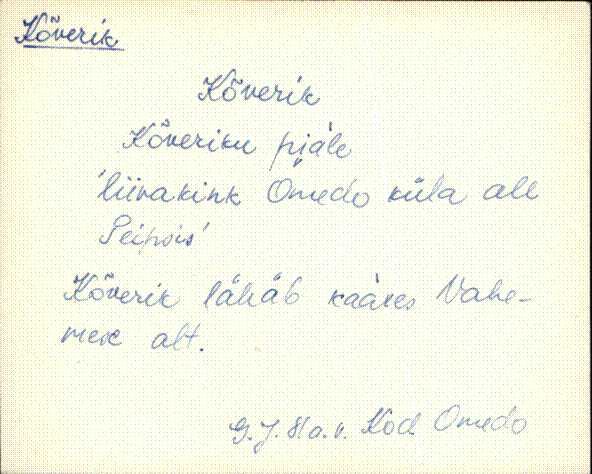 Kõverik
Kõverik
Kõveriku piäle
'liivakink Omedo küla all
Peipsis'
Kõverik lähäb kaares Vahe-
mere alt.
G. J. 81 a. v. Kod Omedo